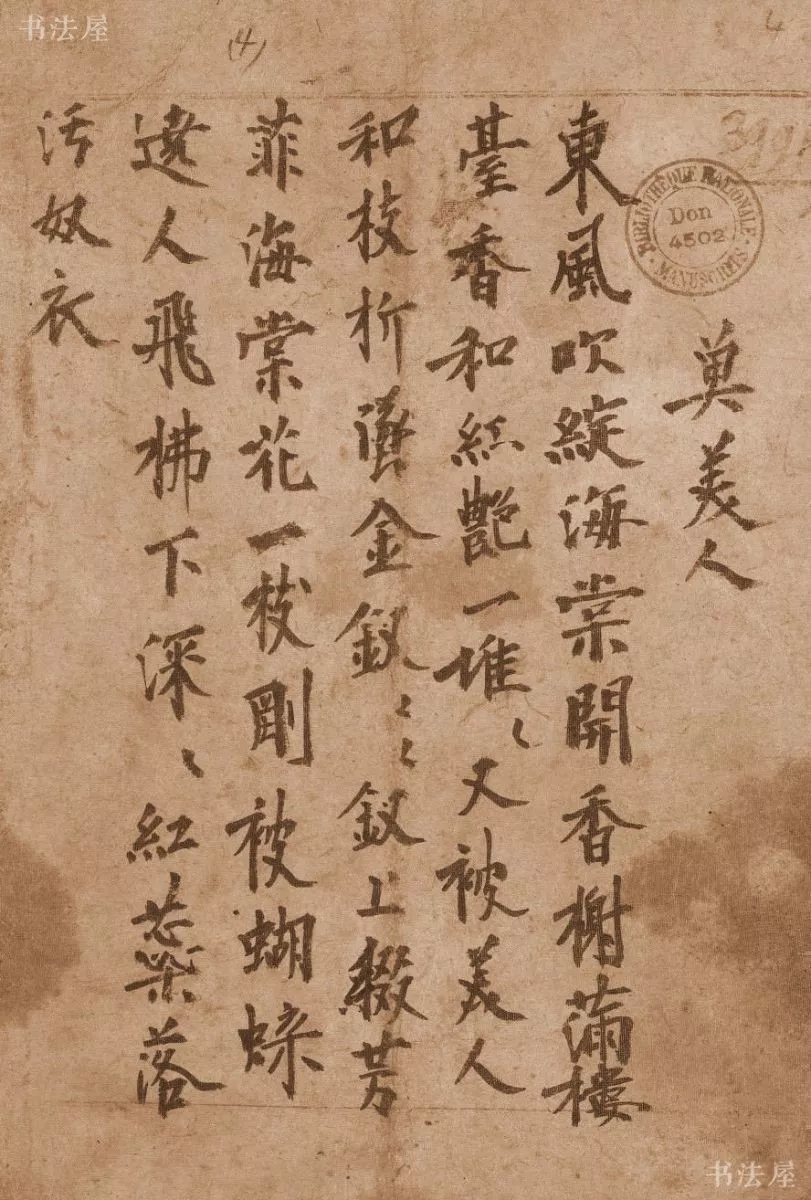 书法屋
(4)
4
399
BIBLIOTHÈQUE NATIONALE
Don
4502
MANUSCRITS
奠美人
東風吹綻海棠開香榭滿樓
臺香和紅艷一堆〻又被美人
和枝折墜金釵〻〻釵上綴芳
菲海棠花一枝剛被蝴蝶
遶人飛拂下深〻紅蕊落
污奴衣
书法屋